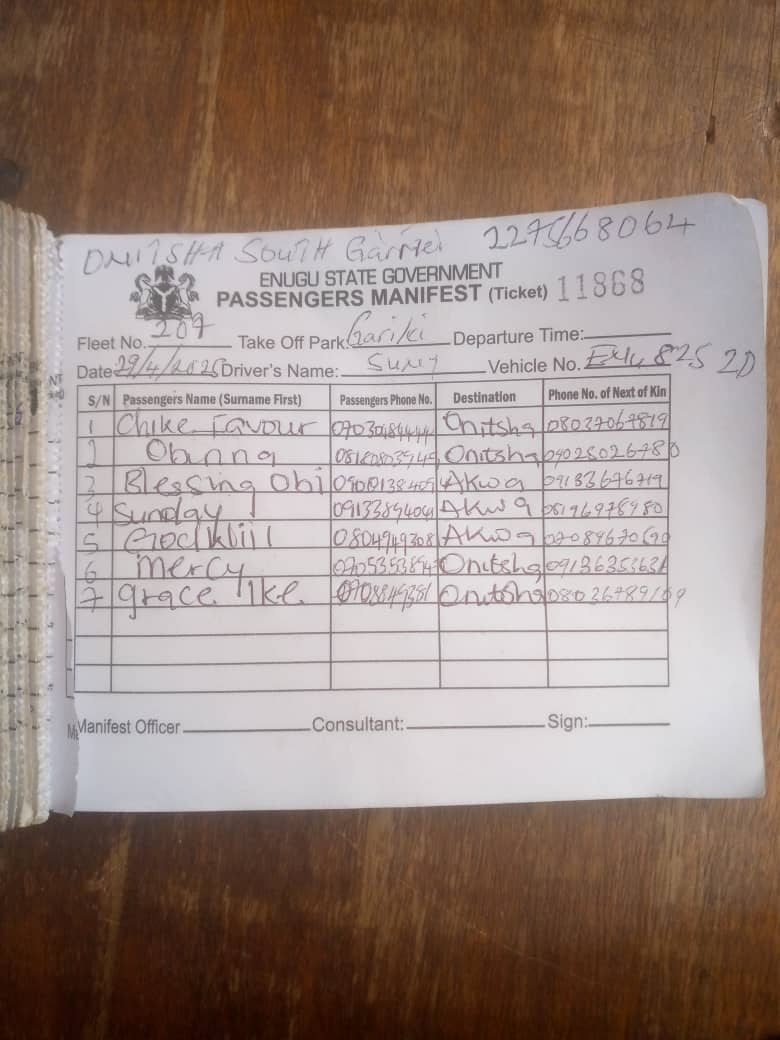 ONITSHA SOUTH Gariki 2275668064
ENUGU STATE GOVERNMENT
PASSENGERS MANIFEST (Ticket) 11868
Fleet No. 207 Take Off Park: Gariki Departure Time:
Date 29/4/2025 Driver's Name: SUNY Vehicle No. 825 ZD
S/N Passengers Name (Surname First) Passengers Phone No. Destination Phone No. of Next of Kin
1 Chike Favour Onitsha 08037067819
2 Obinna Onitsha 09025026780
3 Blessing Obi Akwa 09133676719
4 Sunday 0913389404 Akwa 08196978980
5 0804949308 Akwa
6 mercy Onitsha
7 grace Ike Onitsha 08026789109
Manifest Officer Consultant: Sign: